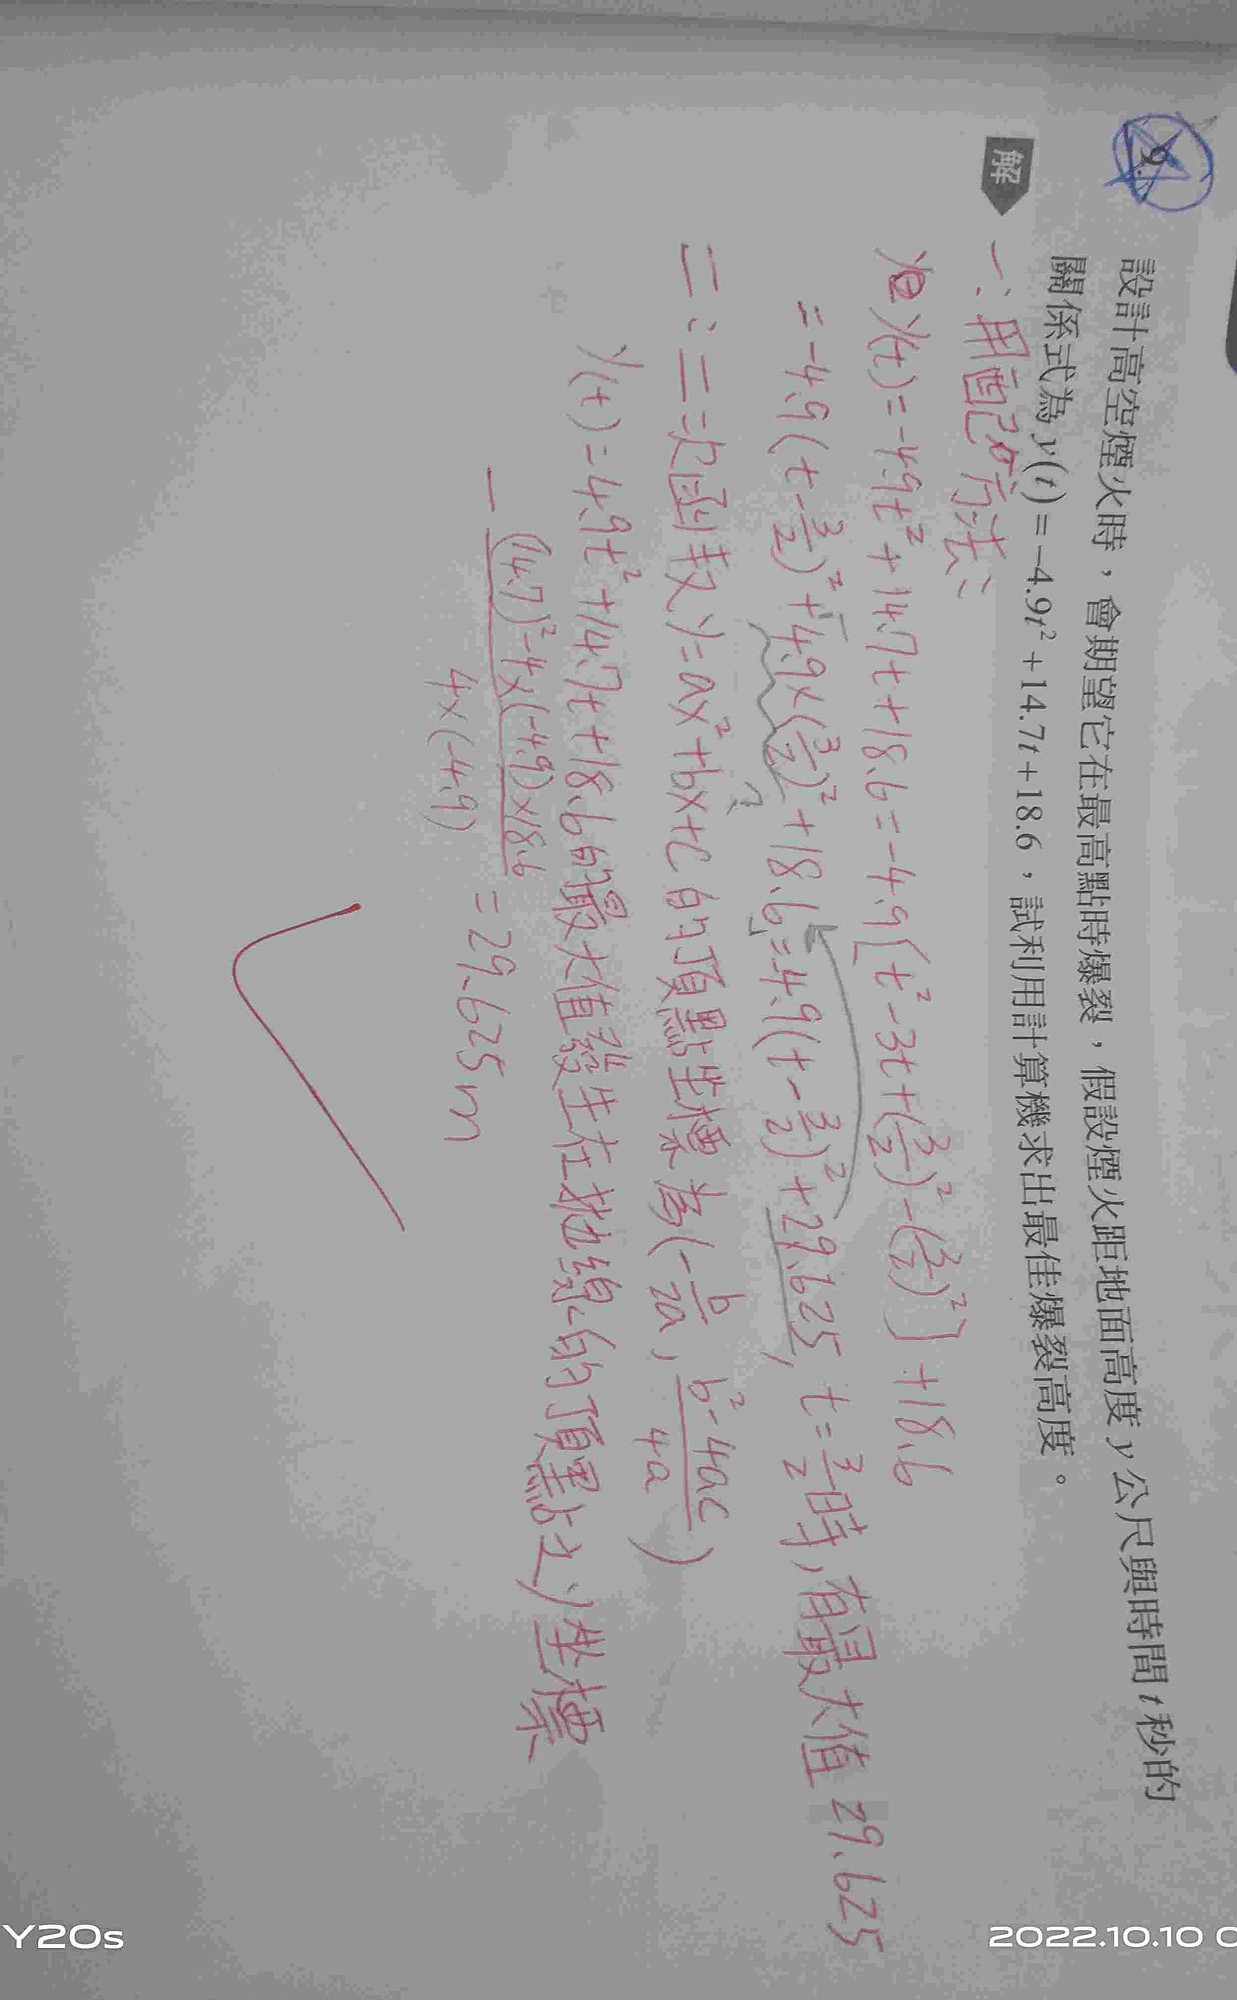 9.
設計高空煙火時，會期望它在最高點時爆裂，假設煙火距地面高度 y 公尺與時間 t 秒的
關係式為 y(t) = -4.9t² + 14.7t + 18.6，試利用計算機求出最佳爆裂高度。
解
一：用配方法：
y(t) = -4.9t² + 14.7t + 18.6 = -4.9[t² - 3t + (3/2)² - (3/2)²] + 18.6
= -4.9(t - 3/2)² + 4.9×(3/2)² + 18.6 = -4.9(t - 3/2)² + 29.625, t = 3/2 時, 有最大值 29.625
二：二次函數 y = ax² + bx + c 的頂點坐標為 (-b/2a, b² - 4ac/4a)
y(t) = -4.9t² + 14.7t + 18.6 的最大值發生在拋物線的頂點之 y 坐標
- (14.7)² - 4×(-4.9)×18.6 / 4×(-4.9) = 29.625 m
Y20s
2022.10.10 0